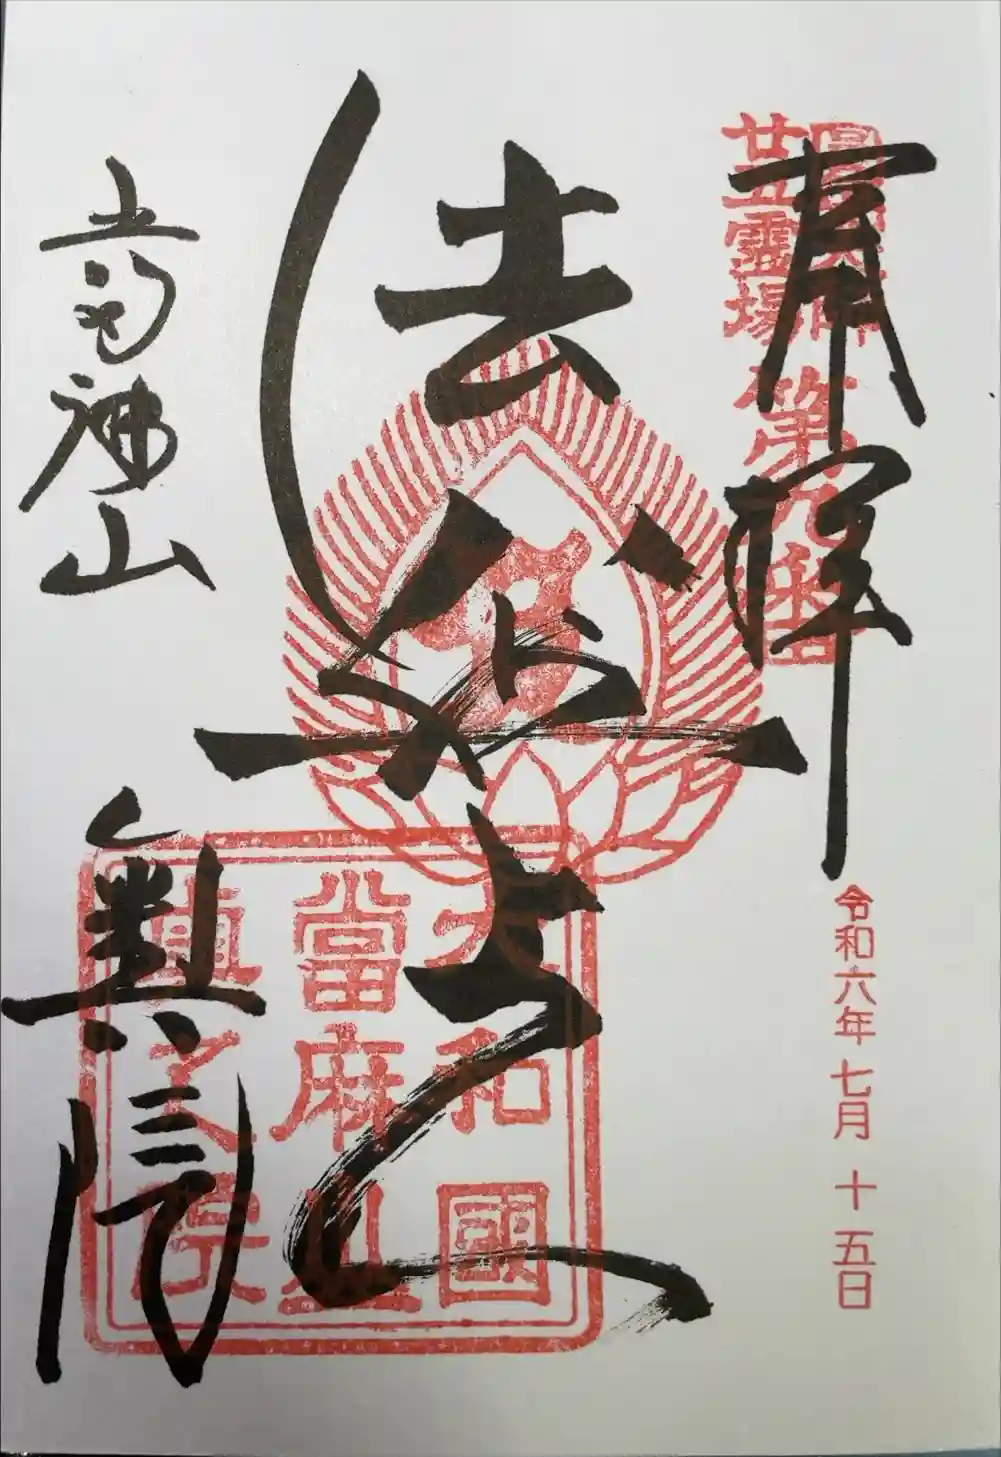 奉拝
圓光大師
廿五霊場
第九番
令和六年七月十五日
法然上人
大和國
當麻山
奥之院
當麻山
奥院